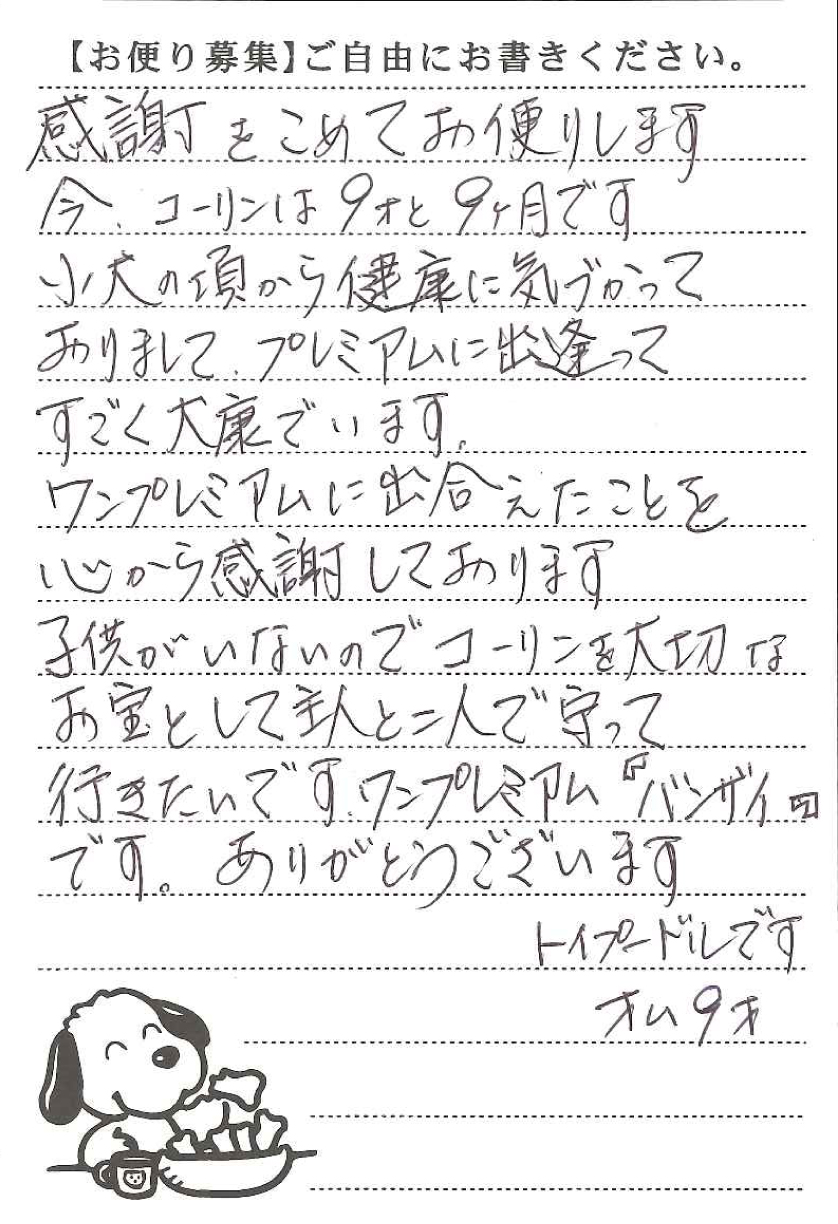 【お便り募集】ご自由にお書きください。
感謝をこめてお便りします
今、コーリンは9才と9ヶ月です
小犬の頃から健康に気づかって
おりまして、プレミアムに出逢って
すごく大康でいます。
ワンプレミアムに出合えたことを
心から感謝しております
子供がいないのでコーリンを大切な
お宝として主人と二人で守って
行きたいです。ワンプレミアム『バンザイ』
です。ありがとうございます
トイプードルです
オム9才